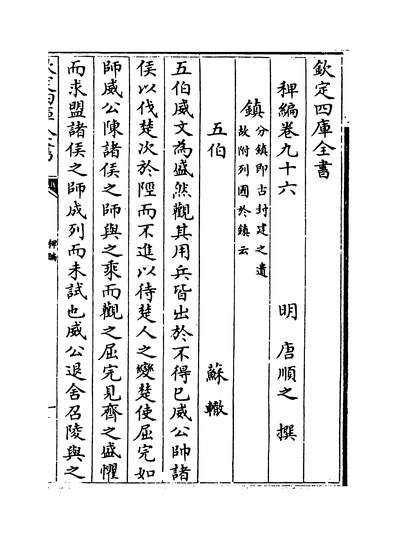 欽定四庫全書
稗編卷九十六
明 唐順之 撰
鎮
分鎮即古封建之遺
故附列國於鎮云
五伯
蘇轍
五伯威文為盛然觀其用兵皆出於不得已威公帥諸
侯以伐楚次於陘而不進以待楚人之變楚使屈完如
師威公陳諸侯之師與之乘而觀之屈完見齊之盛懼
而求盟諸侯之師成列而未試也威公退舍召陵與之
稗編
一